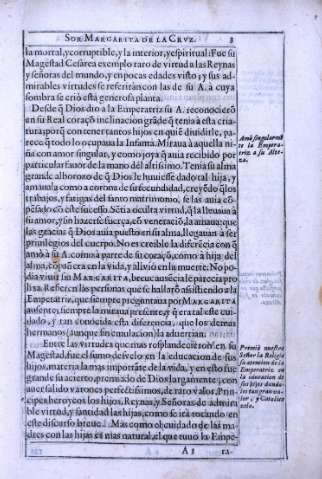 SOR MARGARITA DE LA CRVZ. 3
la mortal, y corruptible, y la interior, y espiritual: Fue su
Magestad Cesarea exemplo raro de virtud a las Reynas
y señoras del mundo, y en pocas edades visto; y sus ad-
mirables virtudes se referirán con las de su A. à cuya
sombra se criò esta generosa planta.
Desde q̃ Dios dio a la Emperatriz su A. reconocierõ
en su Real coraçõ inclinaciõ grãde q̃ tenia à esta cria-
tura, porq̃ con tener tantos hijos en quiẽ diuidirle, pa-
rece q̃ todo lo ocupaua la Infanta. Miraua à aquella ni-
ña con amor singular, y como joya q̃ auia recibido por
particular fauor de la mano del altissimo. Tenia su alma
grande alboroço de q̃ Dios le huuiesse dado tal hija, y
amauala como a corona de su fecundidad, creyẽdo q̃ los
trabajos, y fatigas del santo matrimonio, se las auia cõ-
pesado cõ este sucesso. Sẽtia oculta virtud, q̃ la lleuaua à
su amor, y sin hazerse fuerça, cõ veneraciõ, la amaua: que
las gracias q̃ Dios auia puesto en su alma, llegauan à ser
priuilegios del cuerpo. No es creible la diferẽcia con q̃
amò à su A. como à parte de su coraçõ, como à hija del
alma, cõpañera en la vida, y aliuio en la muerte. No po-
dia viuir sin MARGARITA, breue ausẽcia le parecia pro-
lixa. Refieren las personas que se hallarõ assistiendo a la
Emperatriz, que siempre preguntaua por MARGARITA
ausente, siempre la miraua presente, y q̃ era tal este cui-
dado, y tan conocida esta diferencia, que los demas
hermanos (aunque sin emulacion) la aduertian.
Entre las virtudes que mas resplandecieron en su
Magestad, fue el sumo desvelo en la educacion de sus
hijos, materia la mas importãte de la vida, y en esto fue
grande su acierto, premiado de Dios largamente, con
auer salido varones perfectissimos, de raro valor, Prin-
cipes heroycos los hijos, Reynas, y Señoras de admira-
ble virtud, y santidad las hijas, como se irà tocando en
este discurso breue. Mas como el cuidado de las ma-
dres con las hijas es mas natural, el que tuuo la Empe-
A 3 ra-
Amò singularmẽ-
te la Empera-
triz a su Alte-
za.
Premiò nuestro
Señor la Religiõ
su atencion de la
Emperatriz en
la educacion de
sus hijos dando-
les tan gran va-
lor, y Catolico
zelo.